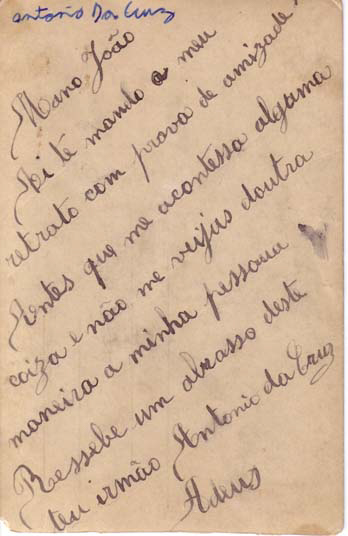 antonio Da Cruz
Mano João
Ai te mando o meu
retrato com prova de amizade
Antes que me acontessa alguma
coiza e não me vejas doutra
maneira a minha pessoua
Ressebe um abrasso deste
teu irmão Antonio da Cruz
Adeus